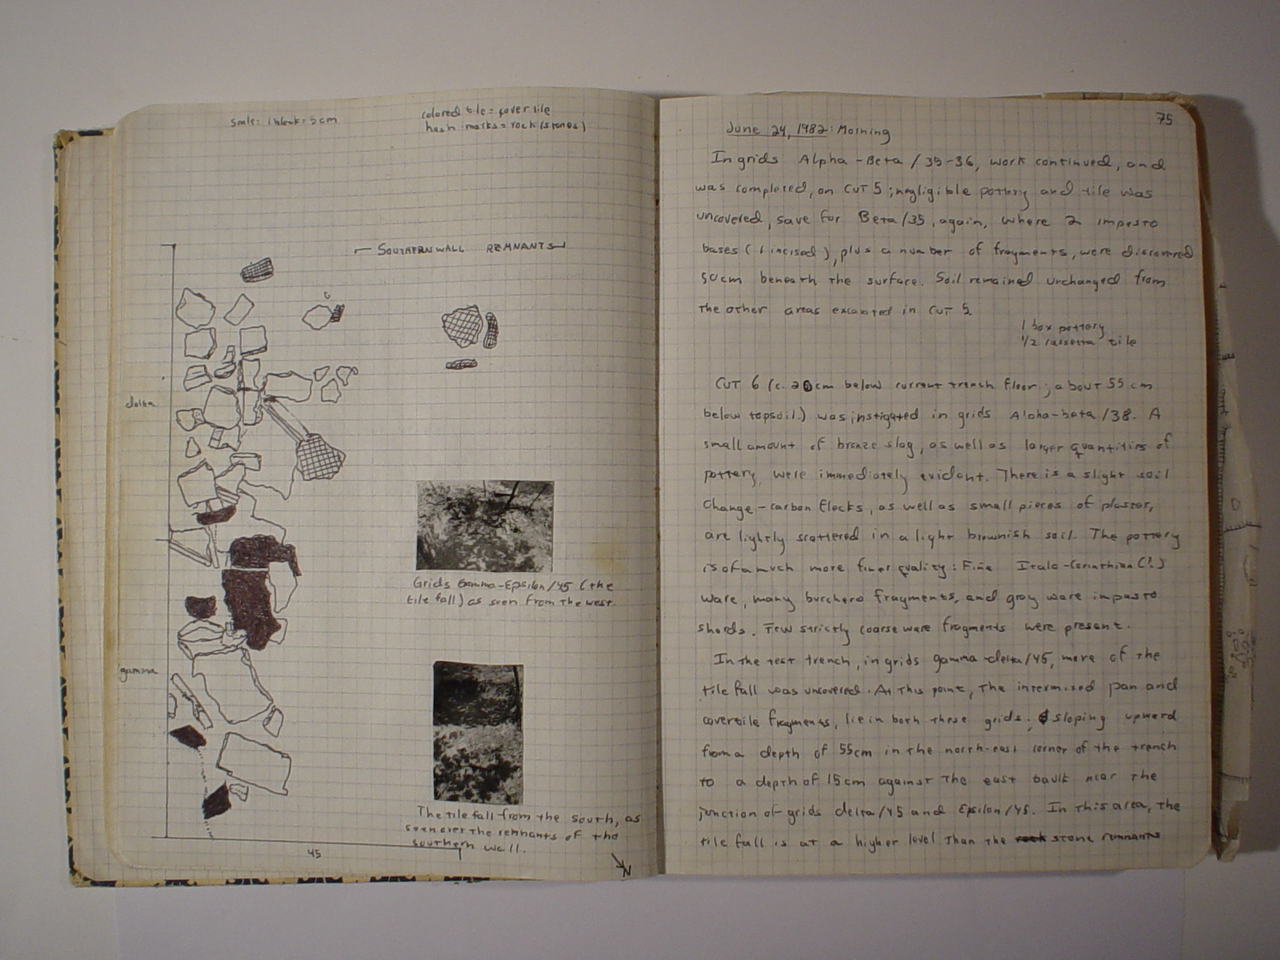 scale: 1 block = 5 cm
colored tile = cover tile
hash marks = rock (stones)
SOUTHERN WALL REMNANTS
delta
gamma
45
Grids Gamma-Epsilon/45 (the
tile fall) as seen from the west.
The tile fall from the south, as
seen over the remnants of the
southern wall.
N
75
June 24, 1982: Morning
In grids Alpha-Beta/35-36, work continued, and
was completed, on CUT 5; negligible pottery and tile was
uncovered, save for Beta/35, again, where 2 impasto
bases (1 incised), plus a number of fragments, were discovered
50cm beneath the surface. Soil remained unchanged from
the other areas excavated in CUT 5.
1 box pottery
1/2 cassetta tile
CUT 6 (c. 20cm below current trench floor; about 55 cm
below topsoil) was instigated in grids Alpha-beta/38. A
small amount of bronze slag, as well as larger quantities of
pottery, were immediately evident. There is a slight soil
change-carbon flecks, as well as small pieces of plaster,
are lightly scattered in a light brownish soil. The pottery
is of a much more finer quality: Fine Italo-Corinthian (?)
ware, many bucchero fragments, and gray ware impasto
sherds. Few strictly coarse ware fragments were present.
In the test trench, in grids gamma-delta/45, more of the
tile fall was uncovered. At this point, the intermixed pan and
covertile fragments, lie in both these grids, sloping upward
from a depth of 55cm in the north-east corner of the trench
to a depth of 15cm against the east baulk near the
junction of grids delta/45 and Epsilon/45. In this area, the
tile fall is at a higher level than the stone remnants